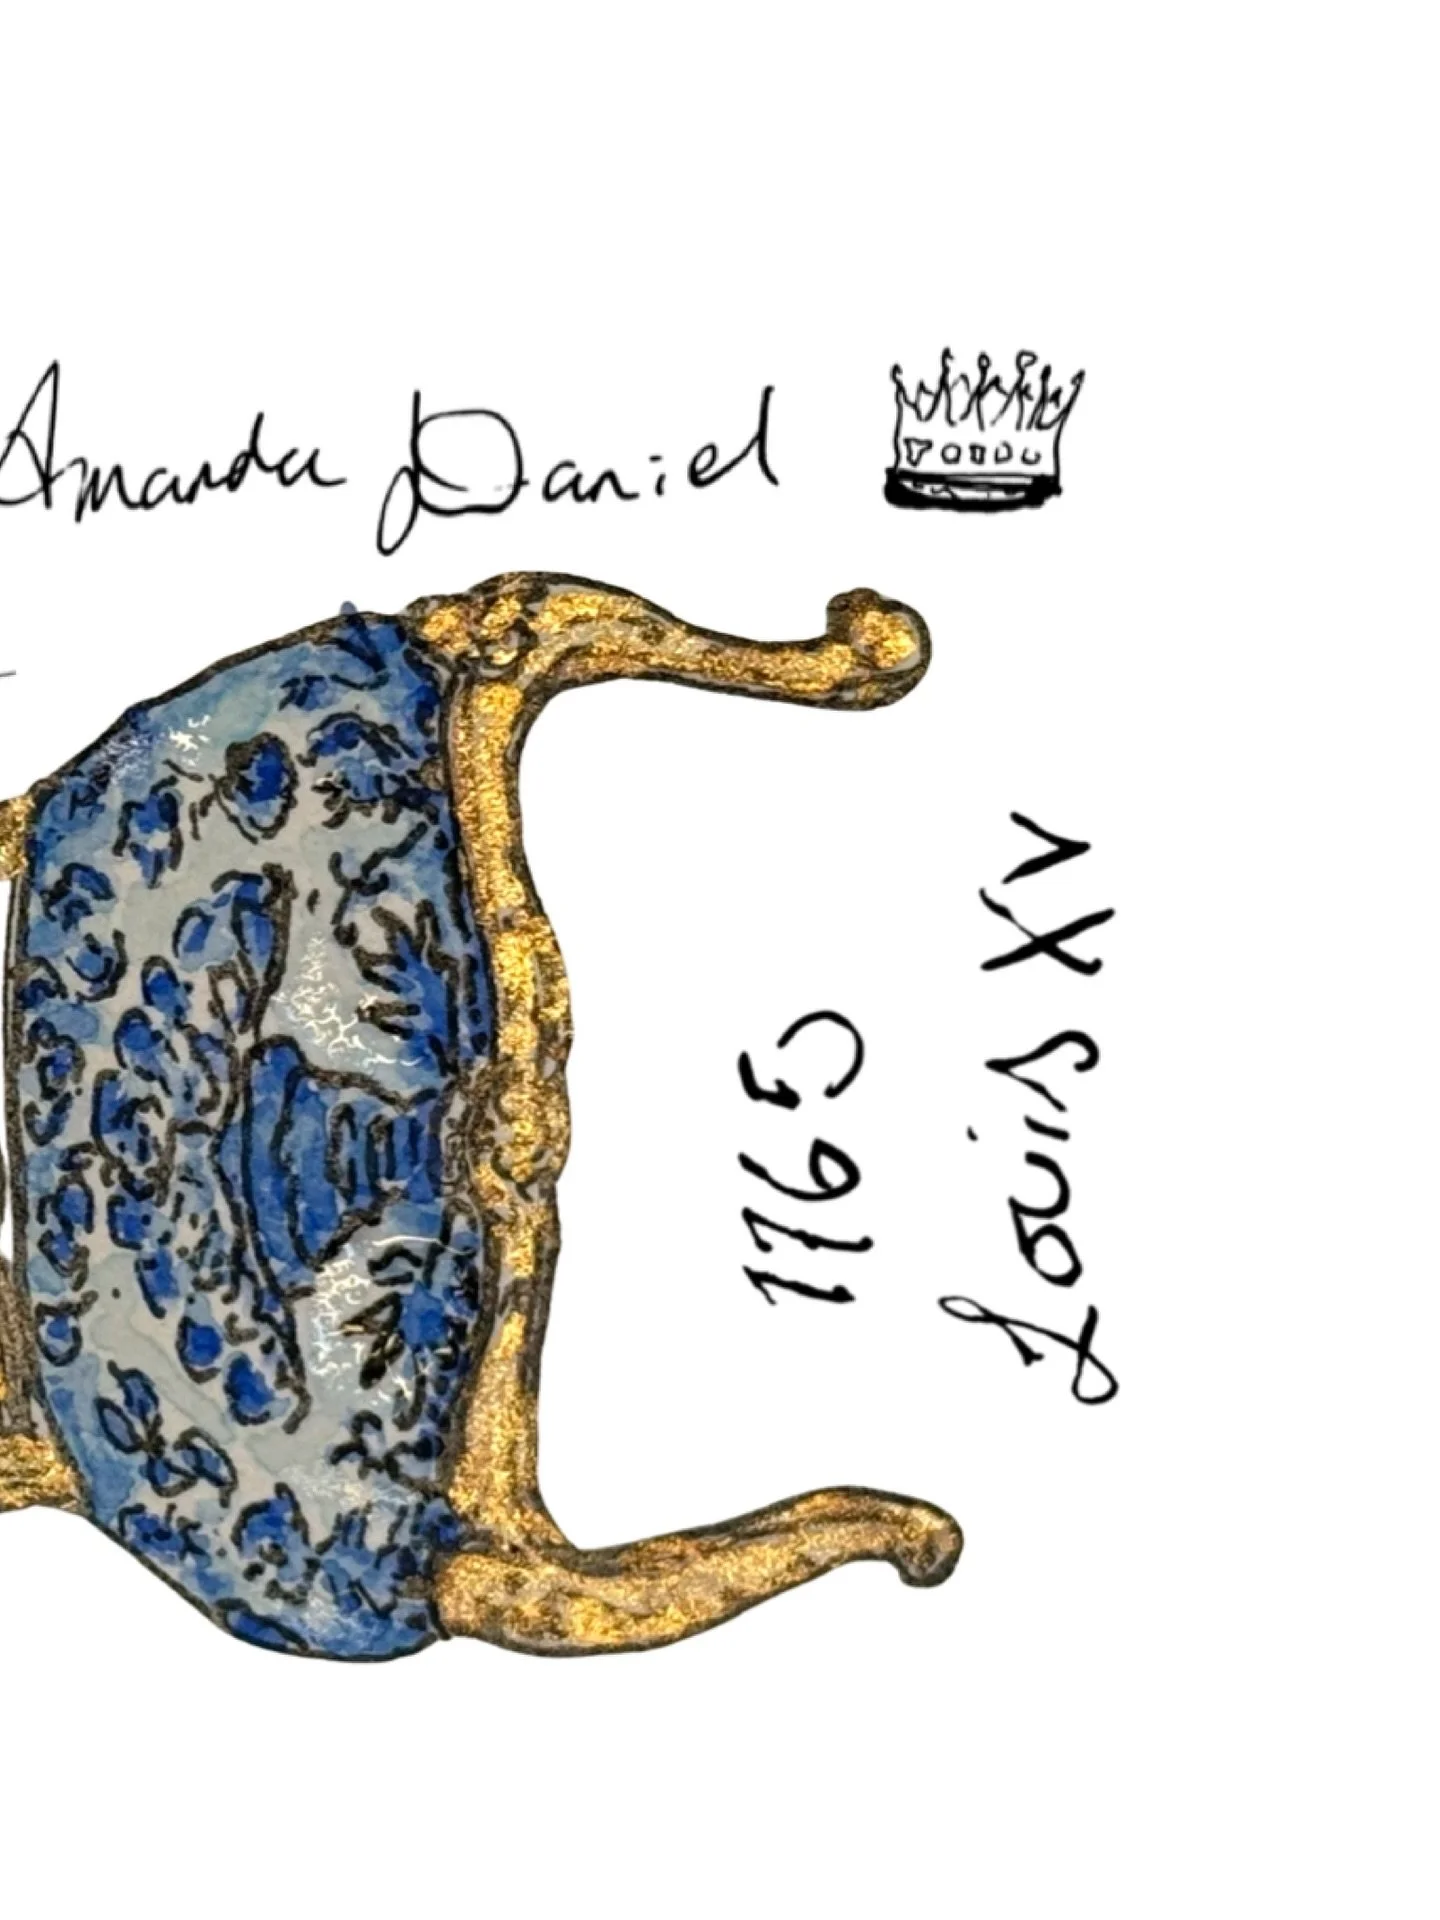 Amanda Daniel
Louis XV
1765